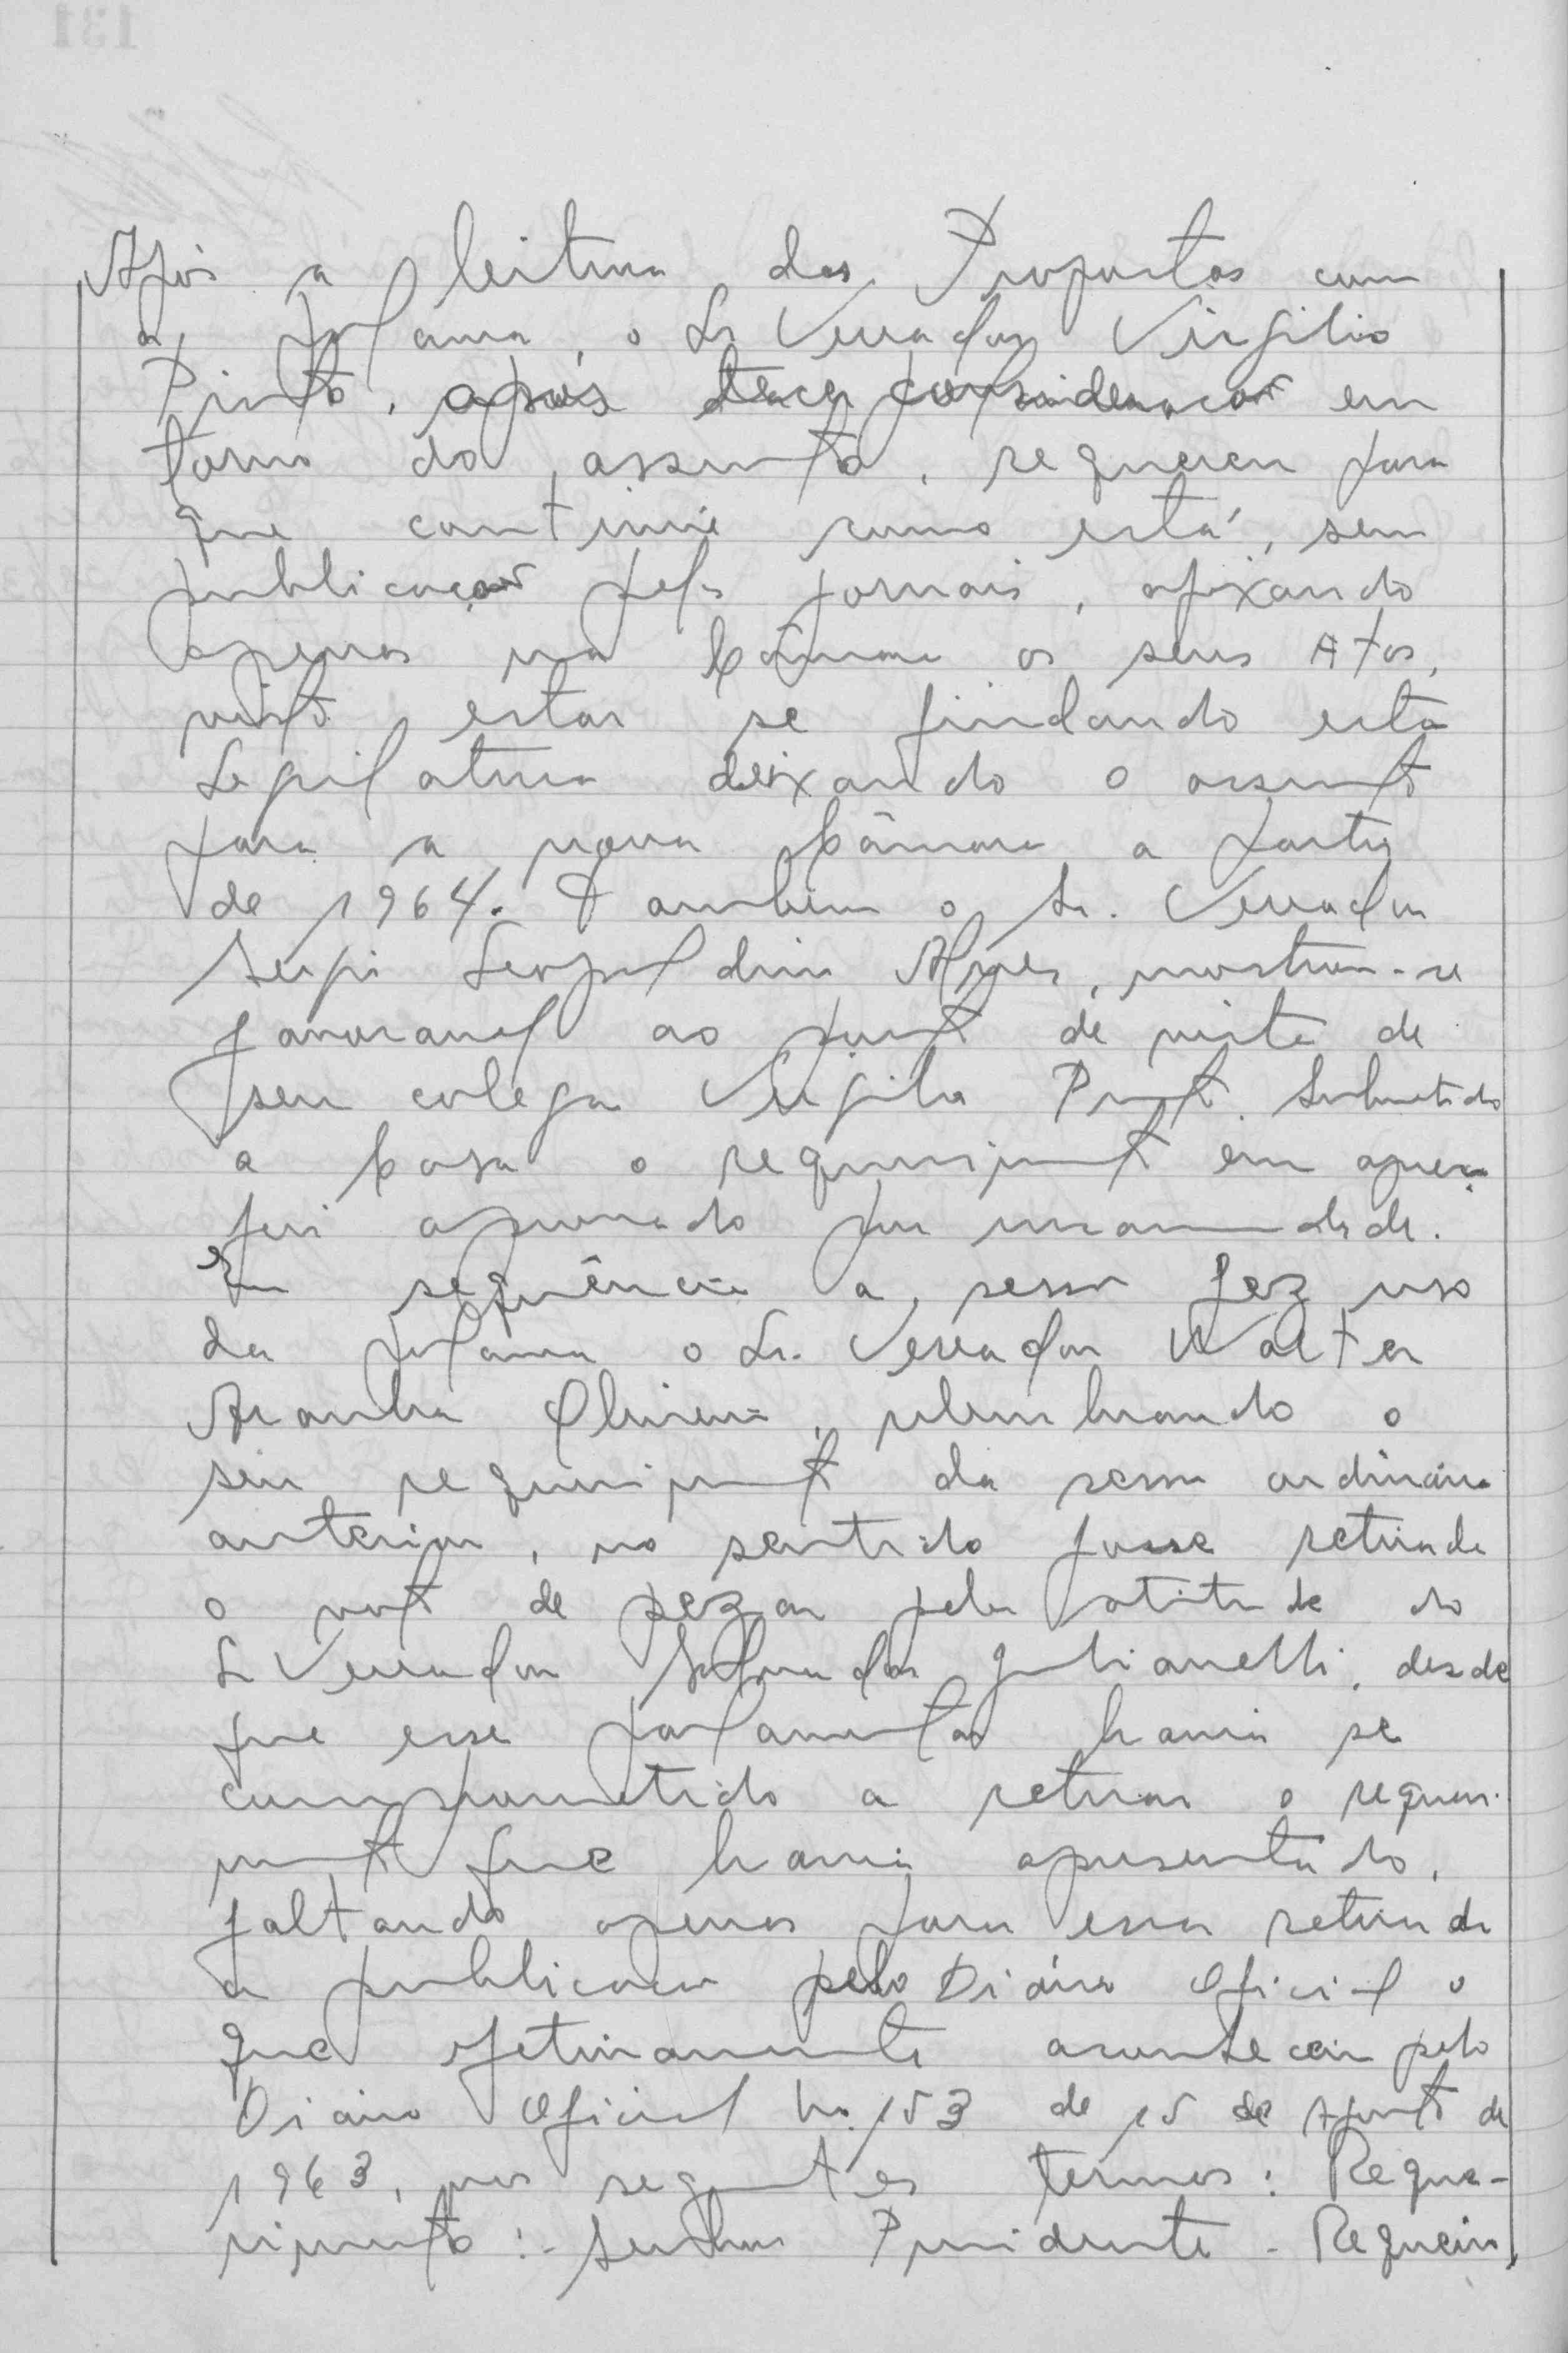 Após a leitura das Propostas com
a palavra, o Sr Vereador Virgilio
Pinto, após tecer consideração em
torno do assunto, requereu para
que continúe como está, sem
publicação pelos jornais, afixando
apenas na Câmara os seus Atos,
visto estar se findando esta
Legislatura deixando o assunto
para a nova Câmara a partir
de 1964. Tambem o Sr. Vereador
Sergio Leopoldino Alves, mostrou-se
favoravel ao ponto de vista de
seu colega Virgilio Pinto. Submetido
a Casa o requerimento em apreço
foi aprovado por unanimidade.
Em sequência a sessão fez uso
da palavra o Sr. Vereador Walter
Aranha Oliveira, relembrando o
seu requerimento da sessão ordinária
anterior, no sentido fosse retirado
o voto de pezar pela atitude do
Sr Vereador Salvador Julianelli, desde
que esse parlamentar havia se
comprometido a retirar o requeri-
mento que havia apresentado,
faltando apenas para essa retirada
a publicação pelo Diário Oficial o
que efetivamente aconteceu pelo
Diário Oficial No. 153 de 15 de Agosto de
1963, nos seguintes termos: Reque-
rimento:- Senhor Presidente - Requeiro,